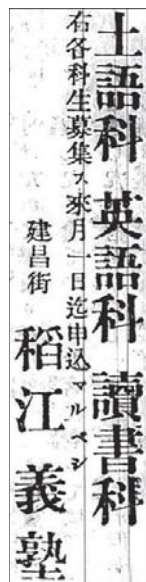 土語科 英語科 讀書科
右各科生募集ス來月一日迄申込マルベシ
建昌街 稻江義塾